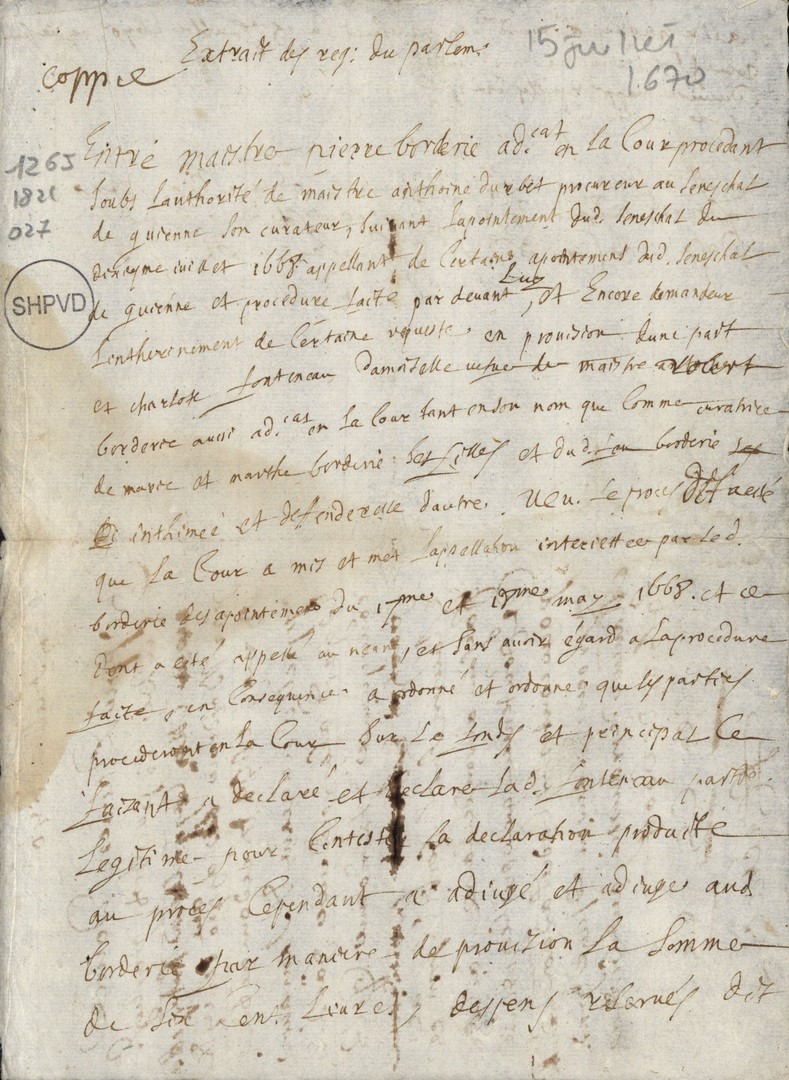 Extrait des reg: du parlem.
15 juillet
1670
coppie
1265
182
027
SHPVD
Entre maistre pierre borderie ad.cat en la Cour procedant
soubs lauthorité de maistre anthoine durbet procureur au seneschal
de guienne son curateur, suivant lapointement dud. seneschal du
juillet 1668. appellant de Certains apointemens dud. seneschal
de guienne et procedure faite par devant luy, et Encore demandeur
lentherinement de Certaine requeste en provision dune part
et charlote fonteneau damoiselle vefve de maistre robert
borderie aussi ad.cat en la Cour tant en son nom que Comme curatrice
de marie et marthe borderie ses filles et dud. feu borderie
inthimeé et deffenderesse dautre. Veu. le proces
que la Cour a mis et met lappellation interiettee par led.
borderie des apointemens du 17me et 19me may 1668. et ce
dont a esté appellé au neant, et sans avoir égard a la procedure
faite, en Consequence a ordonné et ordonne que les parties
procederont en la Cour sur le fonds et principal Ce
faizant a declaré et declare lad. fonteneau partie
Legitime pour Contester la declaration produite
au proces Cependant a adiugé et adiuge aud
borderie par maniere de provision la somme
de six Cent Livres, despens reservés dit